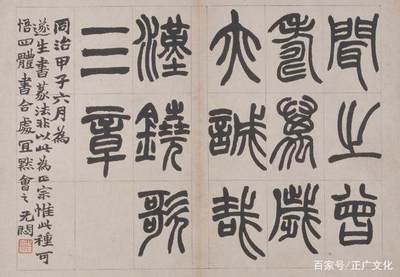 聞之曾
壽萬歲
亦誠哉
漢鐃歌
三章
同治甲子六月為
遂生書篆法非以此為正宗惟此種可
悟四體書合處宜默會之无悶
百家号/正广文化